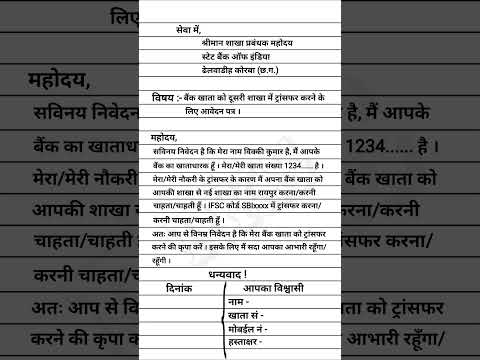 सेवा में,
श्रीमान शाखा प्रबंधक महोदय
स्टेट बैंक ऑफ इंडिया
ढेलवाडीह कोरबा (छ.ग.)
विषय :- बैंक खाता को दूसरी शाखा में ट्रांसफर करने के
लिए आवेदन पत्र ।
महोदय,
सविनय निवेदन है कि मेरा नाम विक्की कुमार है, मैं आपके
बैंक का खाताधारक हूँ । मेरा/मेरी खाता संख्या 1234...... है ।
मेरा/मेरी नौकरी के ट्रांसफर के कारण में अपना बैंक खाता को
आपकी शाखा से नई शाखा का नाम रायपुर करना/करनी
चाहता/चाहती हूँ । IFSC कोर्ड SBIxxxx में ट्रांसफर करना/
करनी चाहता/चाहती हूँ ।
अतः आप से विनम्र निवेदन है कि मेरा बैंक खाता को ट्रांसफर
करने की कृपा करें । इसके लिए में सदा आपका आभारी रहूँगा/
रहूँगी ।
धन्यवाद !
दिनांक
आपका विश्वासी
नाम -
खाता सं -
मोबईल नं -
हस्ताक्षर -
महोदय,
सविनय निवेदन
है, मैं आपके
बैंक का खाताध
1234...... है ।
मेरा/मेरी नौकरी
बैंक खाता को
आपकी शाखा
करना/करनी
चाहता/चाहती
करना/
करनी चाहता/च
अतः आप से वि
को ट्रांसफर
करने की कृपा क
आभारी रहूँगा/